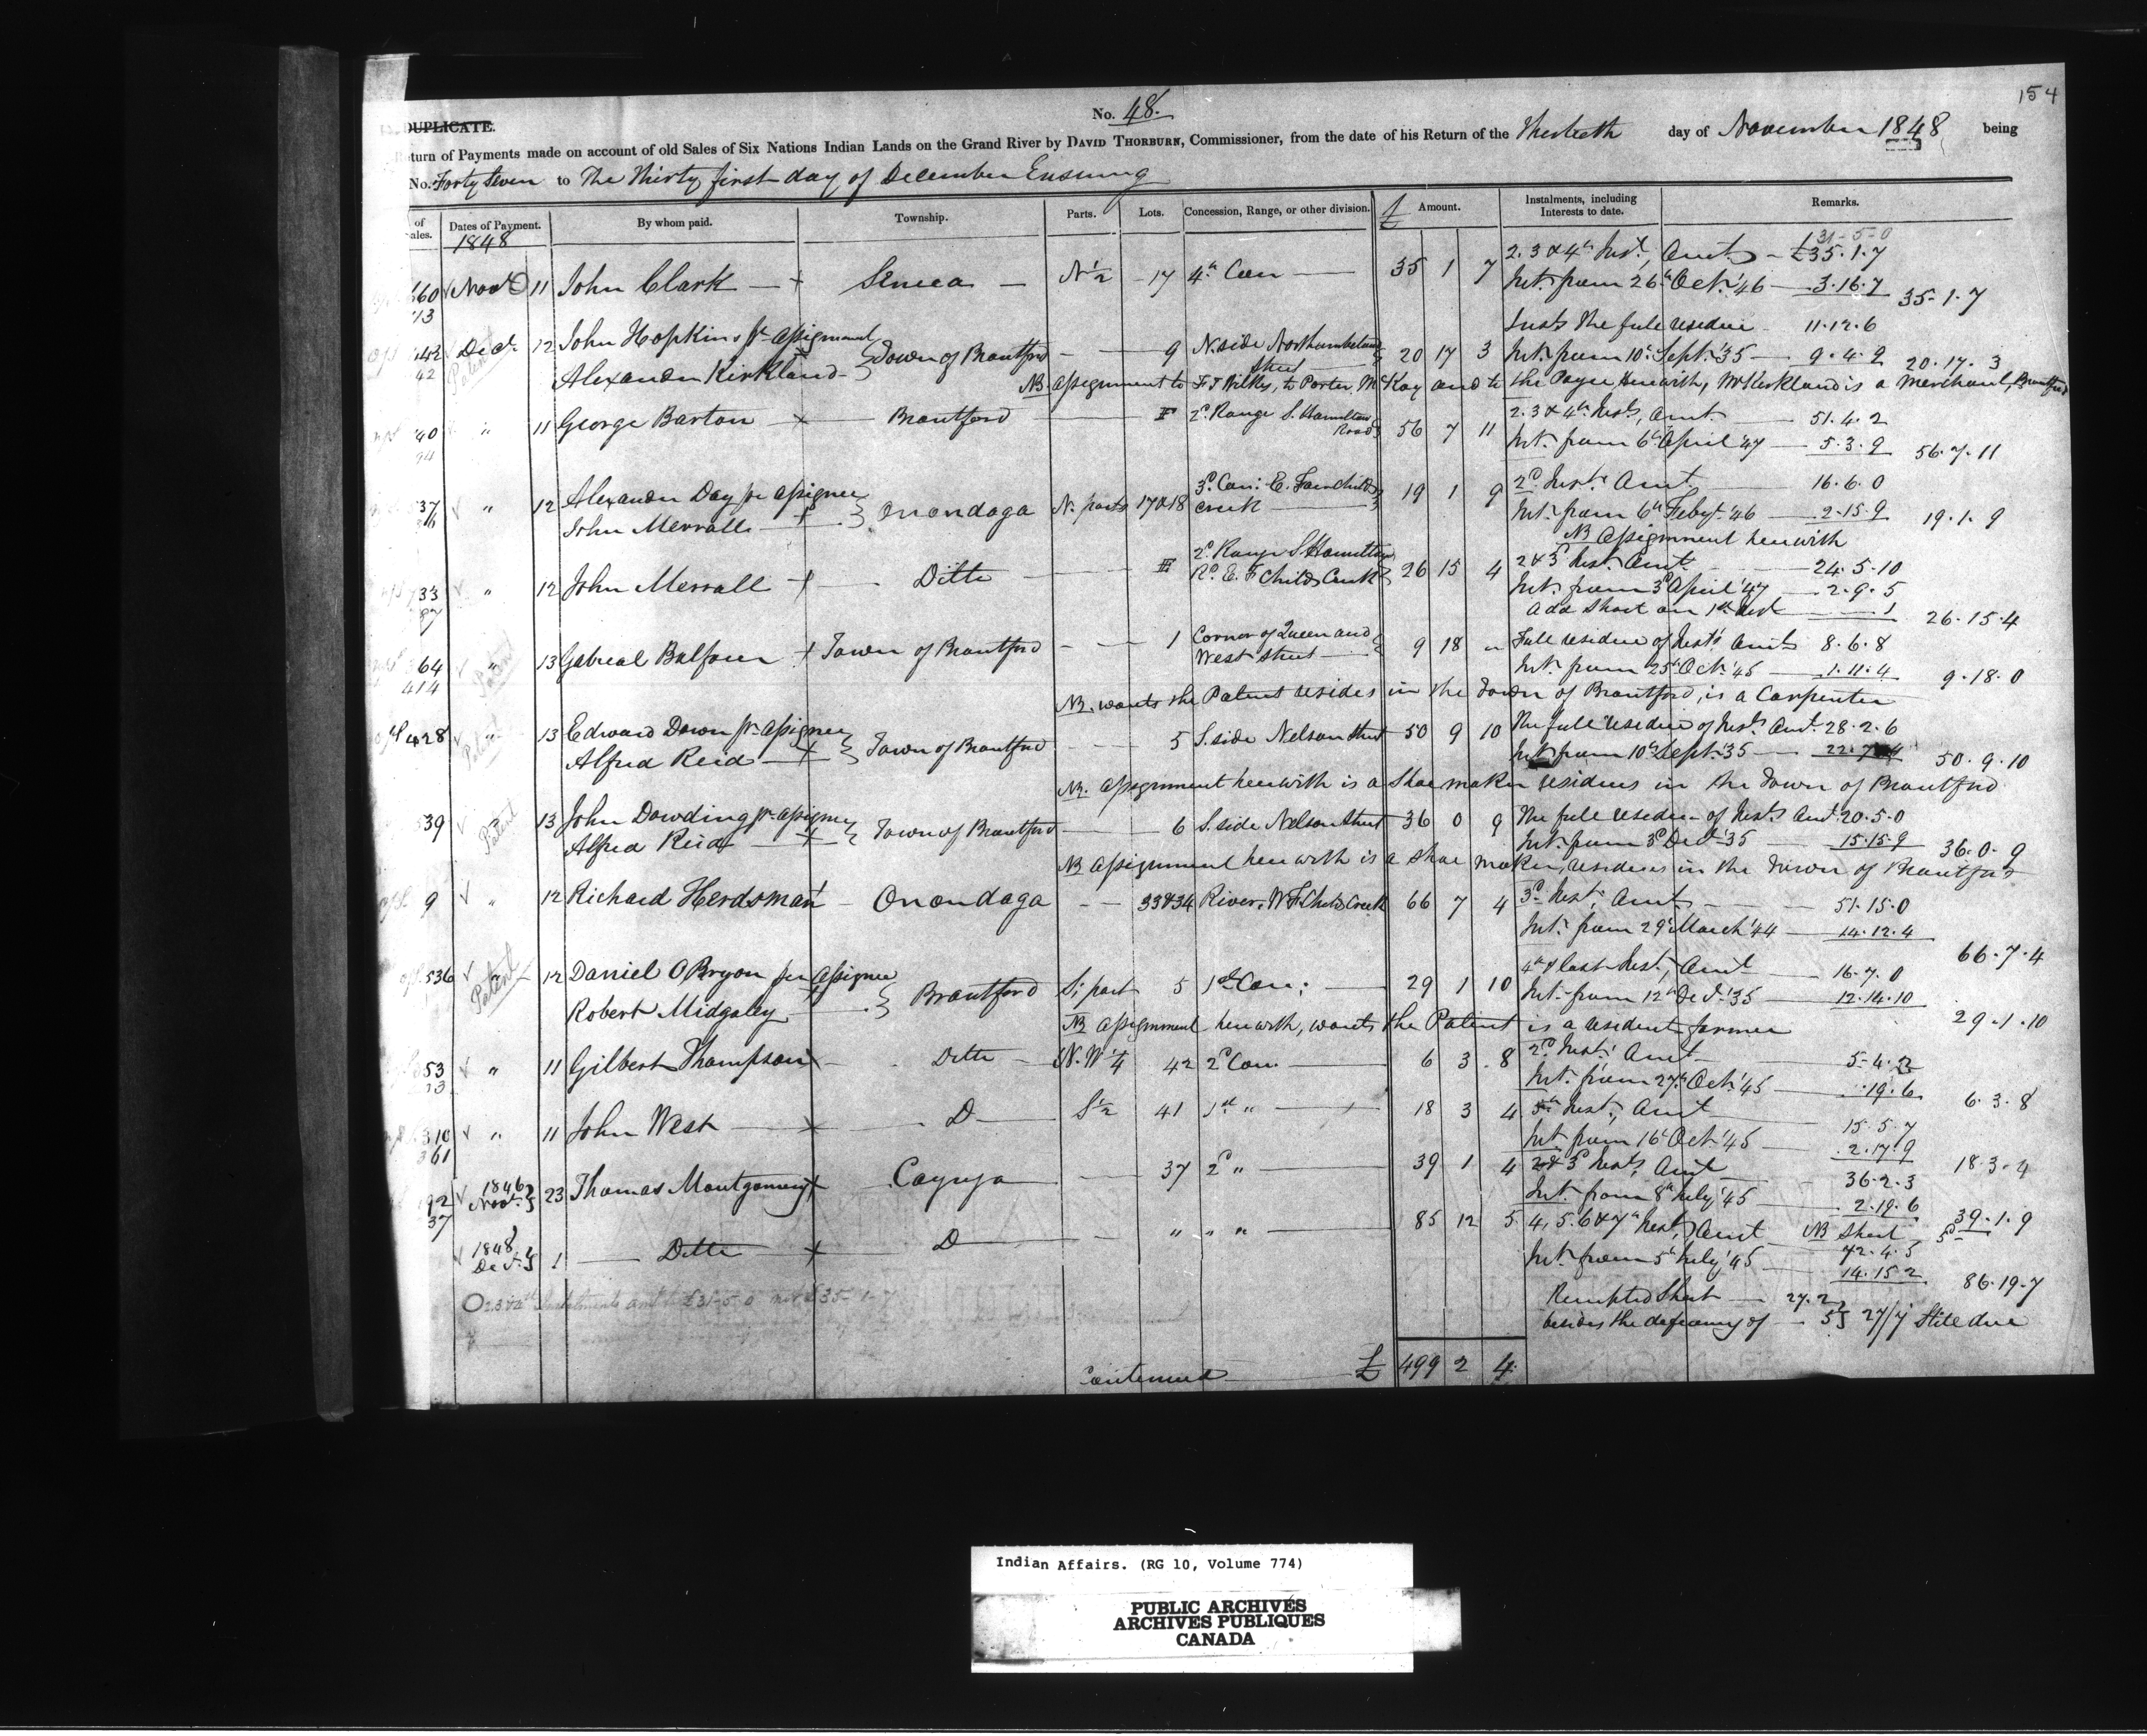 154
No. 48.
DUPLICATE.
Return of Payments made on account of old Sales of Six Nations Indian Lands on the Grand River by DAVID THORBURN, Commissioner, from the date of his Return of the Thirtieth day of November 1848 being
No. Forty Seven to The Thirty first day of December Ensuing
of Sales. Dates of Payment. By whom paid. Township. Parts. Lots. Concession, Range, or other division. £ Amount. Instalments, including Interests to date. Remarks.
1848
31-5-0
2. 3 & 4th Inst, Amt £35.1.7
660 Novr 11 John Clark Seneca N½ 17 4th Con 35 1 7 Int. from 26th Oct. '46 3.16.7 35.1.7
13
Insts the full residue 11.12.6
442 Decr 12 John Hopkins pr Assignment
42 Alexander Kirkland Town of Brantford 9 N. side Northumberland Street 20 17 3 Int. from 10th Sept. '35 9.4.9 20.17.3
Patent
NB assignment to F T Wilkes, to Porter, McKay and to the Payee herewith, Mr Kirkland is a Merchant, Brantford
40 " 11 George Barton Brantford F 2d Range S. Hamilton Road 56 7 11 2. 3 & 4th Insts, Amt 51.4.2
94 Int. from 6th April '47 5.3.9 56.7.11
37 " 12 Alexander Day pr assignee
John Merrall Onondaga N. parts 17&18 3d Con: E. Fairchilds creek 19 1 9 2d Inst. Amt 16.6.0
Int. from 6th Feby '46 2.15.9 19.1.9
NB Assignment herewith
733 " 12 John Merrall Ditto 2d Range S Hamilton Rd. E. F Childs Creek 26 15 4 2 & 3d Inst. Amt 24.5.10
87 Int. from 3d April '47 2.9.5
Add Short on 1st Inst 1 26.15.4
364 " 13 Gabreal Balfour Town of Brantford 1 Corner of Queen and West Street 9 18 " Full residue of Insts Amt 8.6.8
414 Patent Int. from 25th Oct. '45 1.11.4 9.18.0
NB. wants the Patent resides in the Town of Brantford, is a Carpenter
428 " 13 Edward Down pr assignee
Patent Alfred Reid Town of Brantford 5 S. side Nelson Street 50 9 10 The full residue of Insts Amt. 28.2.6
Int. from 10th Sept. '35 22.7.4 50.9.10
NB. Assignment herewith is a Shoe maker resides in the Town of Brantford
539 " 13 John Dowding pr assignee
Patent Alfred Reid Town of Brantford 6 S. side Nelson Street 36 0 9 The full residue of Insts Amt. 20.5.0
Int. from 3d Decr '35 15.15.9 36.0.9
NB Assignment herewith is a Shoe maker, resides in the Town of Brantford
9 " 12 Richard Herdsman Onondaga 33&34 River, W F. Childs Creek 66 7 4 3d Inst, Amt 51.15.0
Int. from 29th March '44 14.12.4 66.7.4
536 " 12 Daniel O Bryon per Assignee
Patent Robert Midgaley Brantford S; part 5 1st Con; 29 1 10 4th & last Inst, Amt 16.7.0
Int. from 12th Decr. '35 12.14.10 29.1.10
NB Assignment herewith, wants the Patent is a resident farmer
53 " 11 Gilbert Thompson Ditto N.W¼ 42 2d Con. 6 3 8 2d Inst. Amt 5.4.2
Int. from 27th Oct. '45 .19.6 6.3.8
310 " 11 John West D S½ 41 1st " 18 3 4 5th Inst, Amt 15.5.7
361 Int. from 16th Oct. '45 2.17.9 18.3.4
192 1846 Novr. 23 Thomas Montgomery Cayuga 37 2d " 39 1 4 2 & 3d Insts, Amt 36.2.3
37 Int. from 8th July '45 2.19.6 39.1.9
NB Short 5d
1848 Decr. 1 Ditto D " " " 85 12 5 4, 5. 6 & 7th Inst, Amt 72.4.5
Int. from 5th July '45 14.15.2 86.19.7
Remitted Short 27.2
besides the deficiency of 5 27/7 Still due
O 2 3 & 4th Instalments amt to £31-5-0 not £35-1-7
Continued £ 499 2 4
Indian Affairs. (RG 10, Volume 774)
PUBLIC ARCHIVES
ARCHIVES PUBLIQUES
CANADA